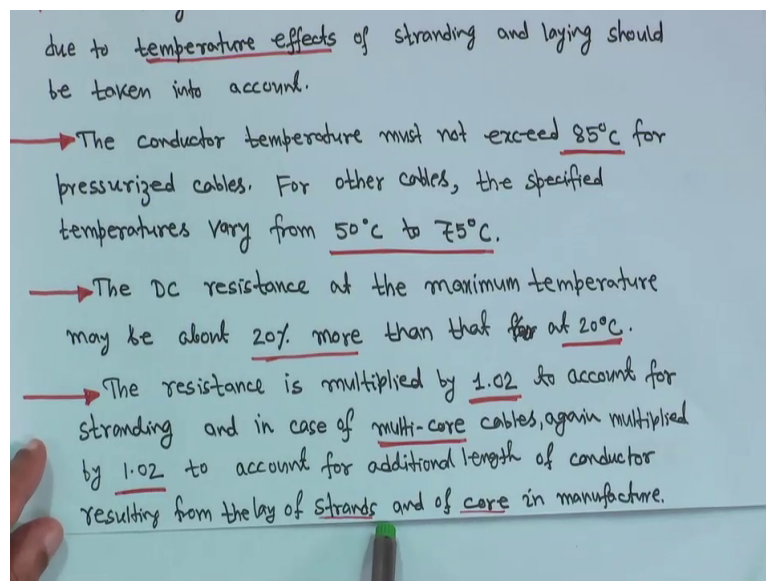 due to temperature effects of stranding and laying should
be taken into account.
The conductor temperature must not exceed 85°C for
pressurized cables. For other cables, the specified
temperatures vary from 50°C to 75°C.
The DC resistance at the maximum temperature
may be about 20% more than that at 20°C.
The resistance is multiplied by 1.02 to account for
stranding and in case of multi-core cables, again multiplied
by 1.02 to account for additional length of conductor
resulting from the lay of strands and of core in manufacture.